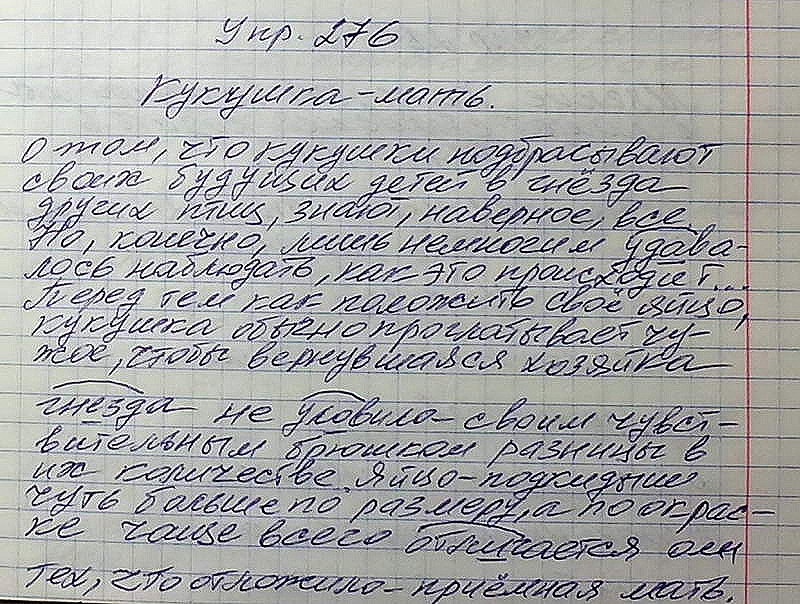 Упр. 276
Кукушка-мать.
О том, что кукушки подбрасывают
своих будущих детей в гнёзда
других птиц, знают, наверное, все.
Но, конечно, лишь немногим удава-
лось наблюдать, как это происходит...
Перед тем как положить своё яйцо,
кукушка обычно проглатывает чу-
жое, чтобы вернувшаяся хозяйка
гнезда не уловила своим чувст-
вительным брюшком разницы в
их количестве. Яйцо-подкидыш
чуть больше по размеру, а по окрас-
ке чаще всего отличается от
тех, что отложила приёмная мать.